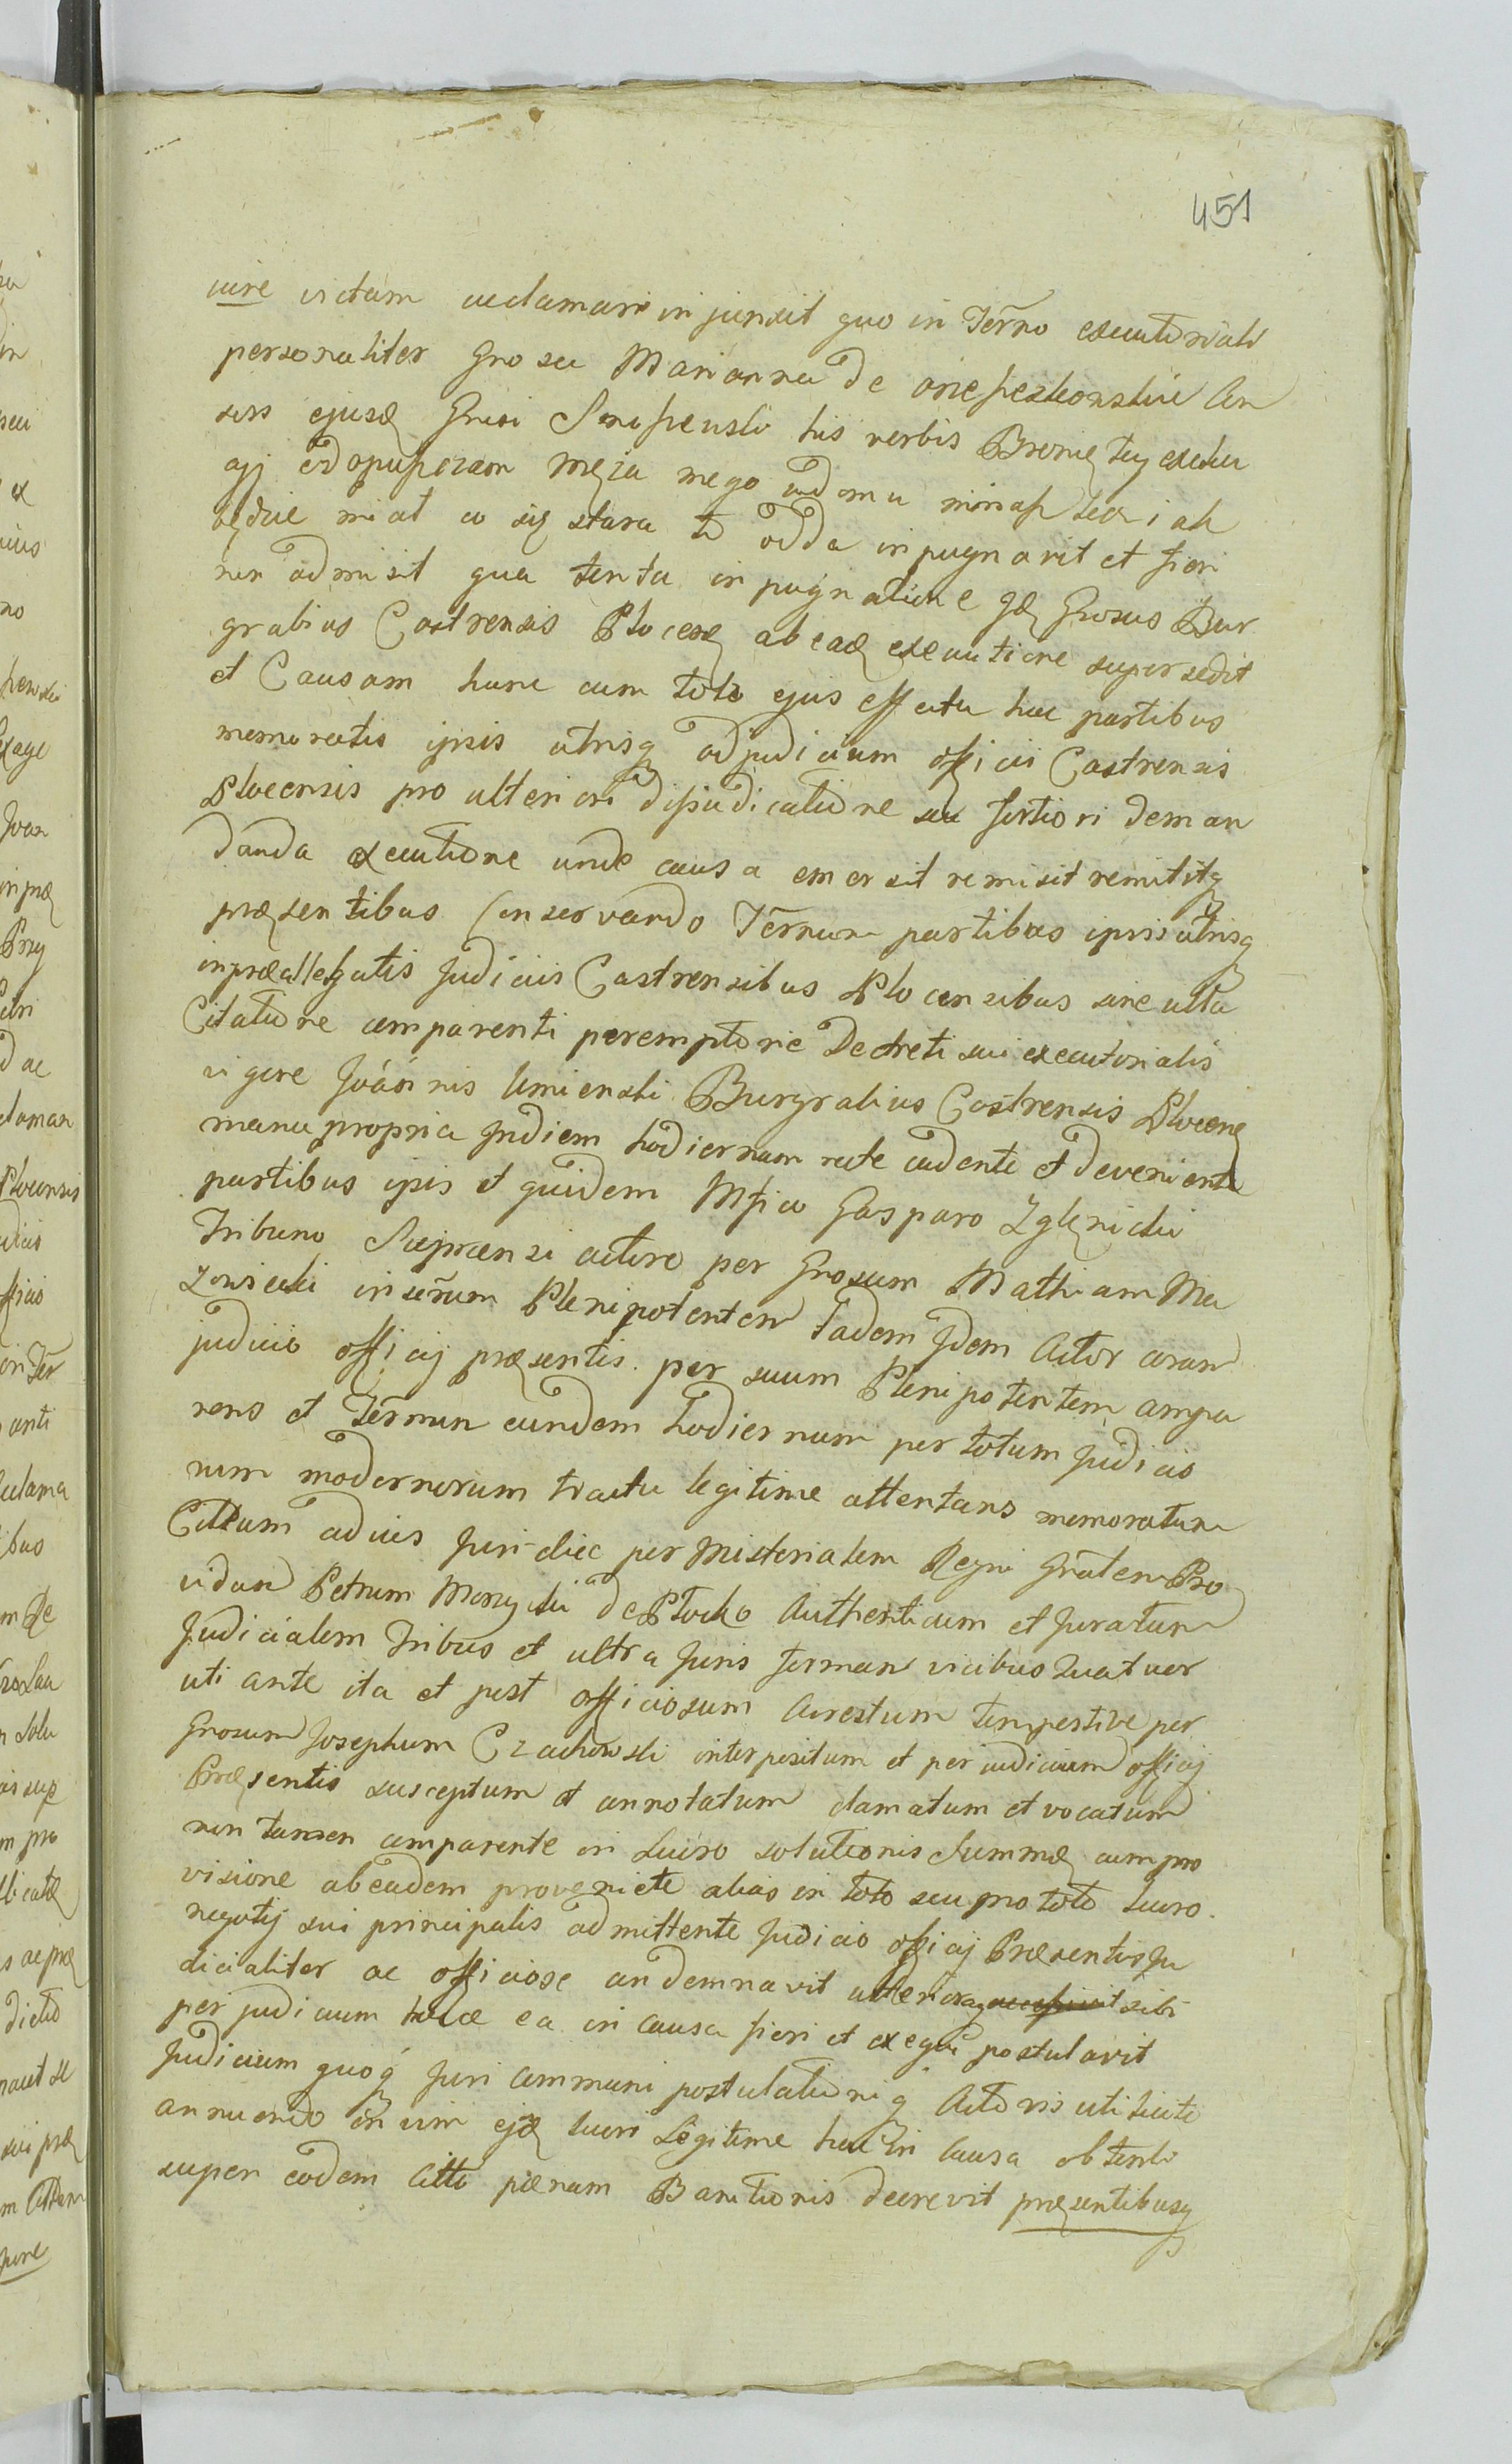 451
iure victam acclamari injunxit quo in Terno executoriali
personaliter Gnosa Marianna de
ejusd Gnosi his verbis Bronię tey exeku
cyi męża mego w domu niemasz iak
będzie miał co się stara to odda inpugnavit et fieri
non admisit qua tenta inpugnatione Gnosus Bur
grabius Castrensis Plocens ab ead executione supersedit
et Causam hanc cum toto ejus effectu hac partibus
memoratis ipsis utrisq ad judicium officii Castrensis
Plocensis pro ulteriori disjudicatione seu fortiori deman
danda executione unde causa emersit remisit remititq
præsentibus Conservando Ternum partibus ipsis utrisq
in præallegatis Judiciis Castrensibus Plocensibus sine ulla
Citatione comparenti peremptorie Decreti sui executorialis
vigore Joannis Umienski Burgrabius Castrensis Plocens
manu propria In diem hodiernam recte cadente et deveniente
partibus ipsis et quidem Mfico Gasparo Zglenicki
Tribuno Sieprcensi actore per Gnosum Mathiam Ma
zowiecki Plenipotentem Tadem Idem Actor coram
judicio officij præsentis per suum Plenipotentem compa
rens et Ternum eundem hodiernum per totum Judicio
rum modernorum tractu legitime attentans memoratum
Cittum ad jus Juridice per Misterialem Regni Gnalem Pro
vidum Petrum de Plocko Authenticum et Juratum
Judicialem Tribus et ultra Juris formam vicibus Quatuor
uti ante ita et post officiosum Arrestum tempestive per
Gnosum Josephum Czachowski interpositum et per iudicium officij
Præsentis susceptum et annotatum clamatum et vocatum
non tamen comparente in Lucro solutionis Summæ cum pro
visione ab eadem alias in toto seu pro toto lucro
negotij sui principalis admittente Judicio officij Præsentis Ju
dicialiter ac officiose condemnavit ulterioraq sibi
per judicium ea in causa fieri et exequi postulavit
Judicium quoq Juri Communi postulationiq Actoris uti licite
annuendo in vim ejusd lucri Legitime hac in causa obtenti
super eodem Citto pænam Banitionis decrevit præsentibusq